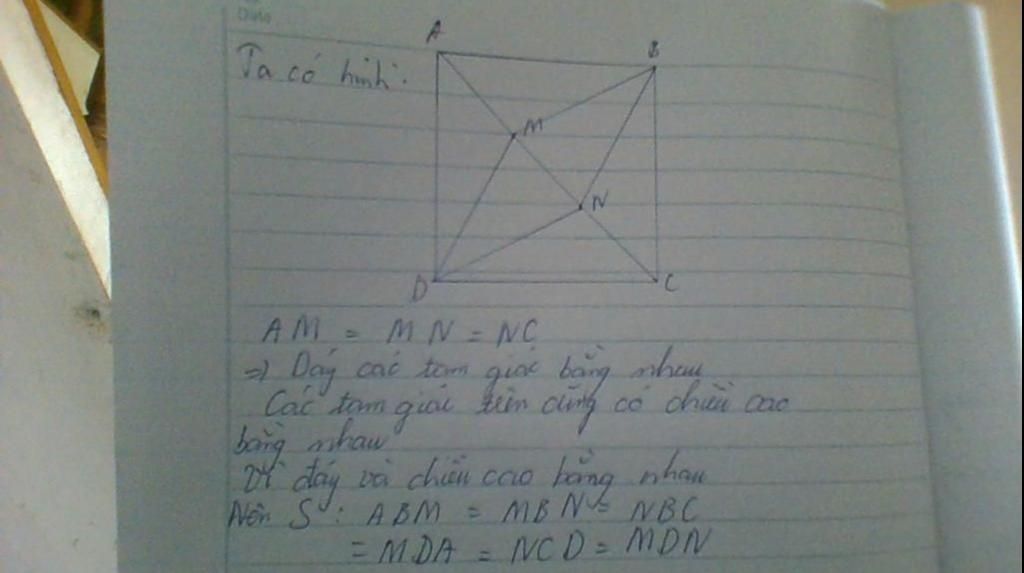 Date
A
B
Ta có hình:
M
N
D
C
AM = MN = NC
=) Dáy các tam giác bằng nhau
Các tam giác trên cũng có chiều cao
bằng nhau
Vì đáy và chiều cao bằng nhau
Nên S : ABM = MBN = NBC
= MDA = NCD = MDN